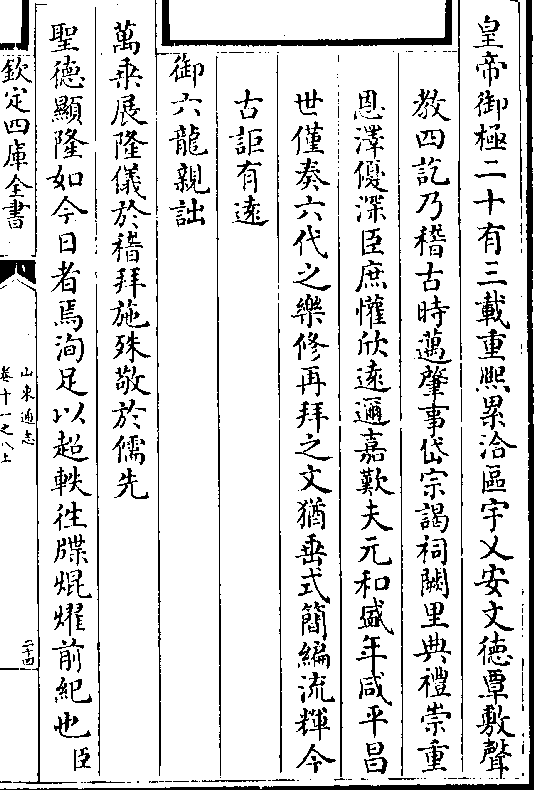 皇帝御極二十有三載重熙累洽區宇乂安文德覃敷聲
教四訖乃稽古時邁肇事岱宗謁祠闕里典禮崇重
恩澤優深臣庶懽欣遠邇嘉歎夫元和盛年咸平昌
世僅奏六代之樂修再拜之文猶垂式簡編流輝今
古詎有遠
御六龍親詘
萬乘展隆儀於稽拜施殊敬於儒先
聖德顯隆如今日者焉洵足以超軼徃牒焜燿前紀也臣
欽定四庫全書
山東通志
卷十一之八上
二十四